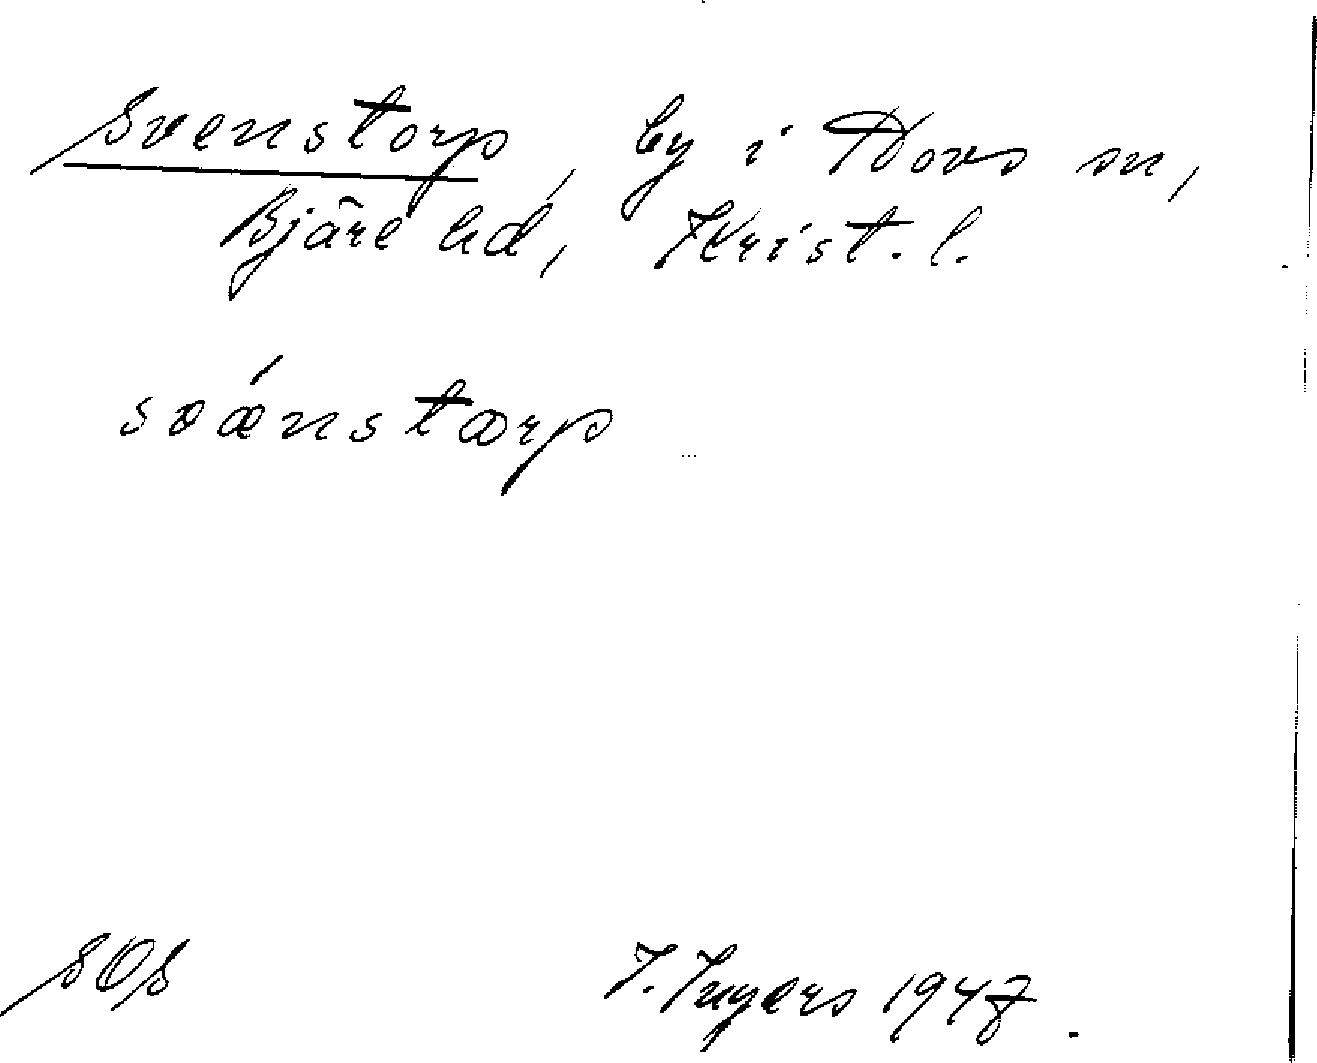 Svenstorp, by i Hovs sn,
Bjäre hd, Krist. l.
svǽnstærp
SOS
I. Ingers 1947.